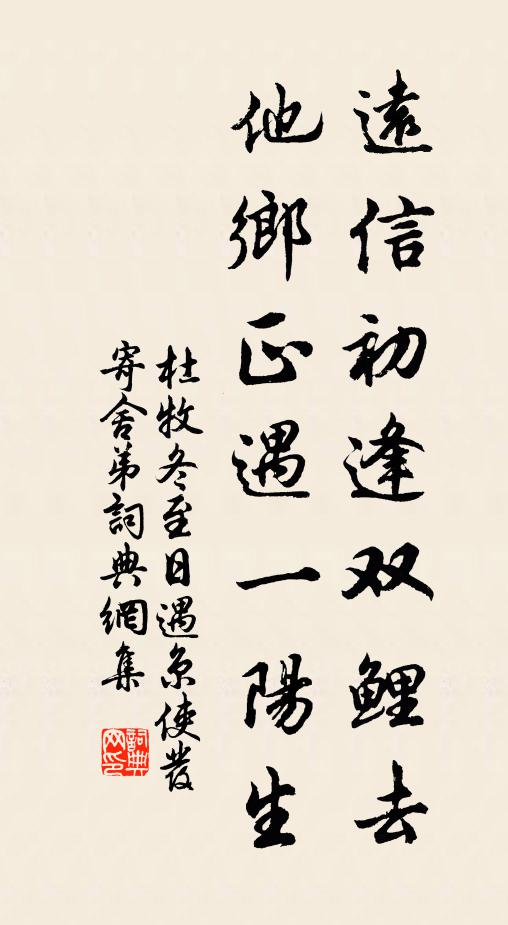 遠信初逢双鯉去
他鄉正遇一陽生
杜牧冬至日遇京使發
寄舍弟詞典網集
詞典网印